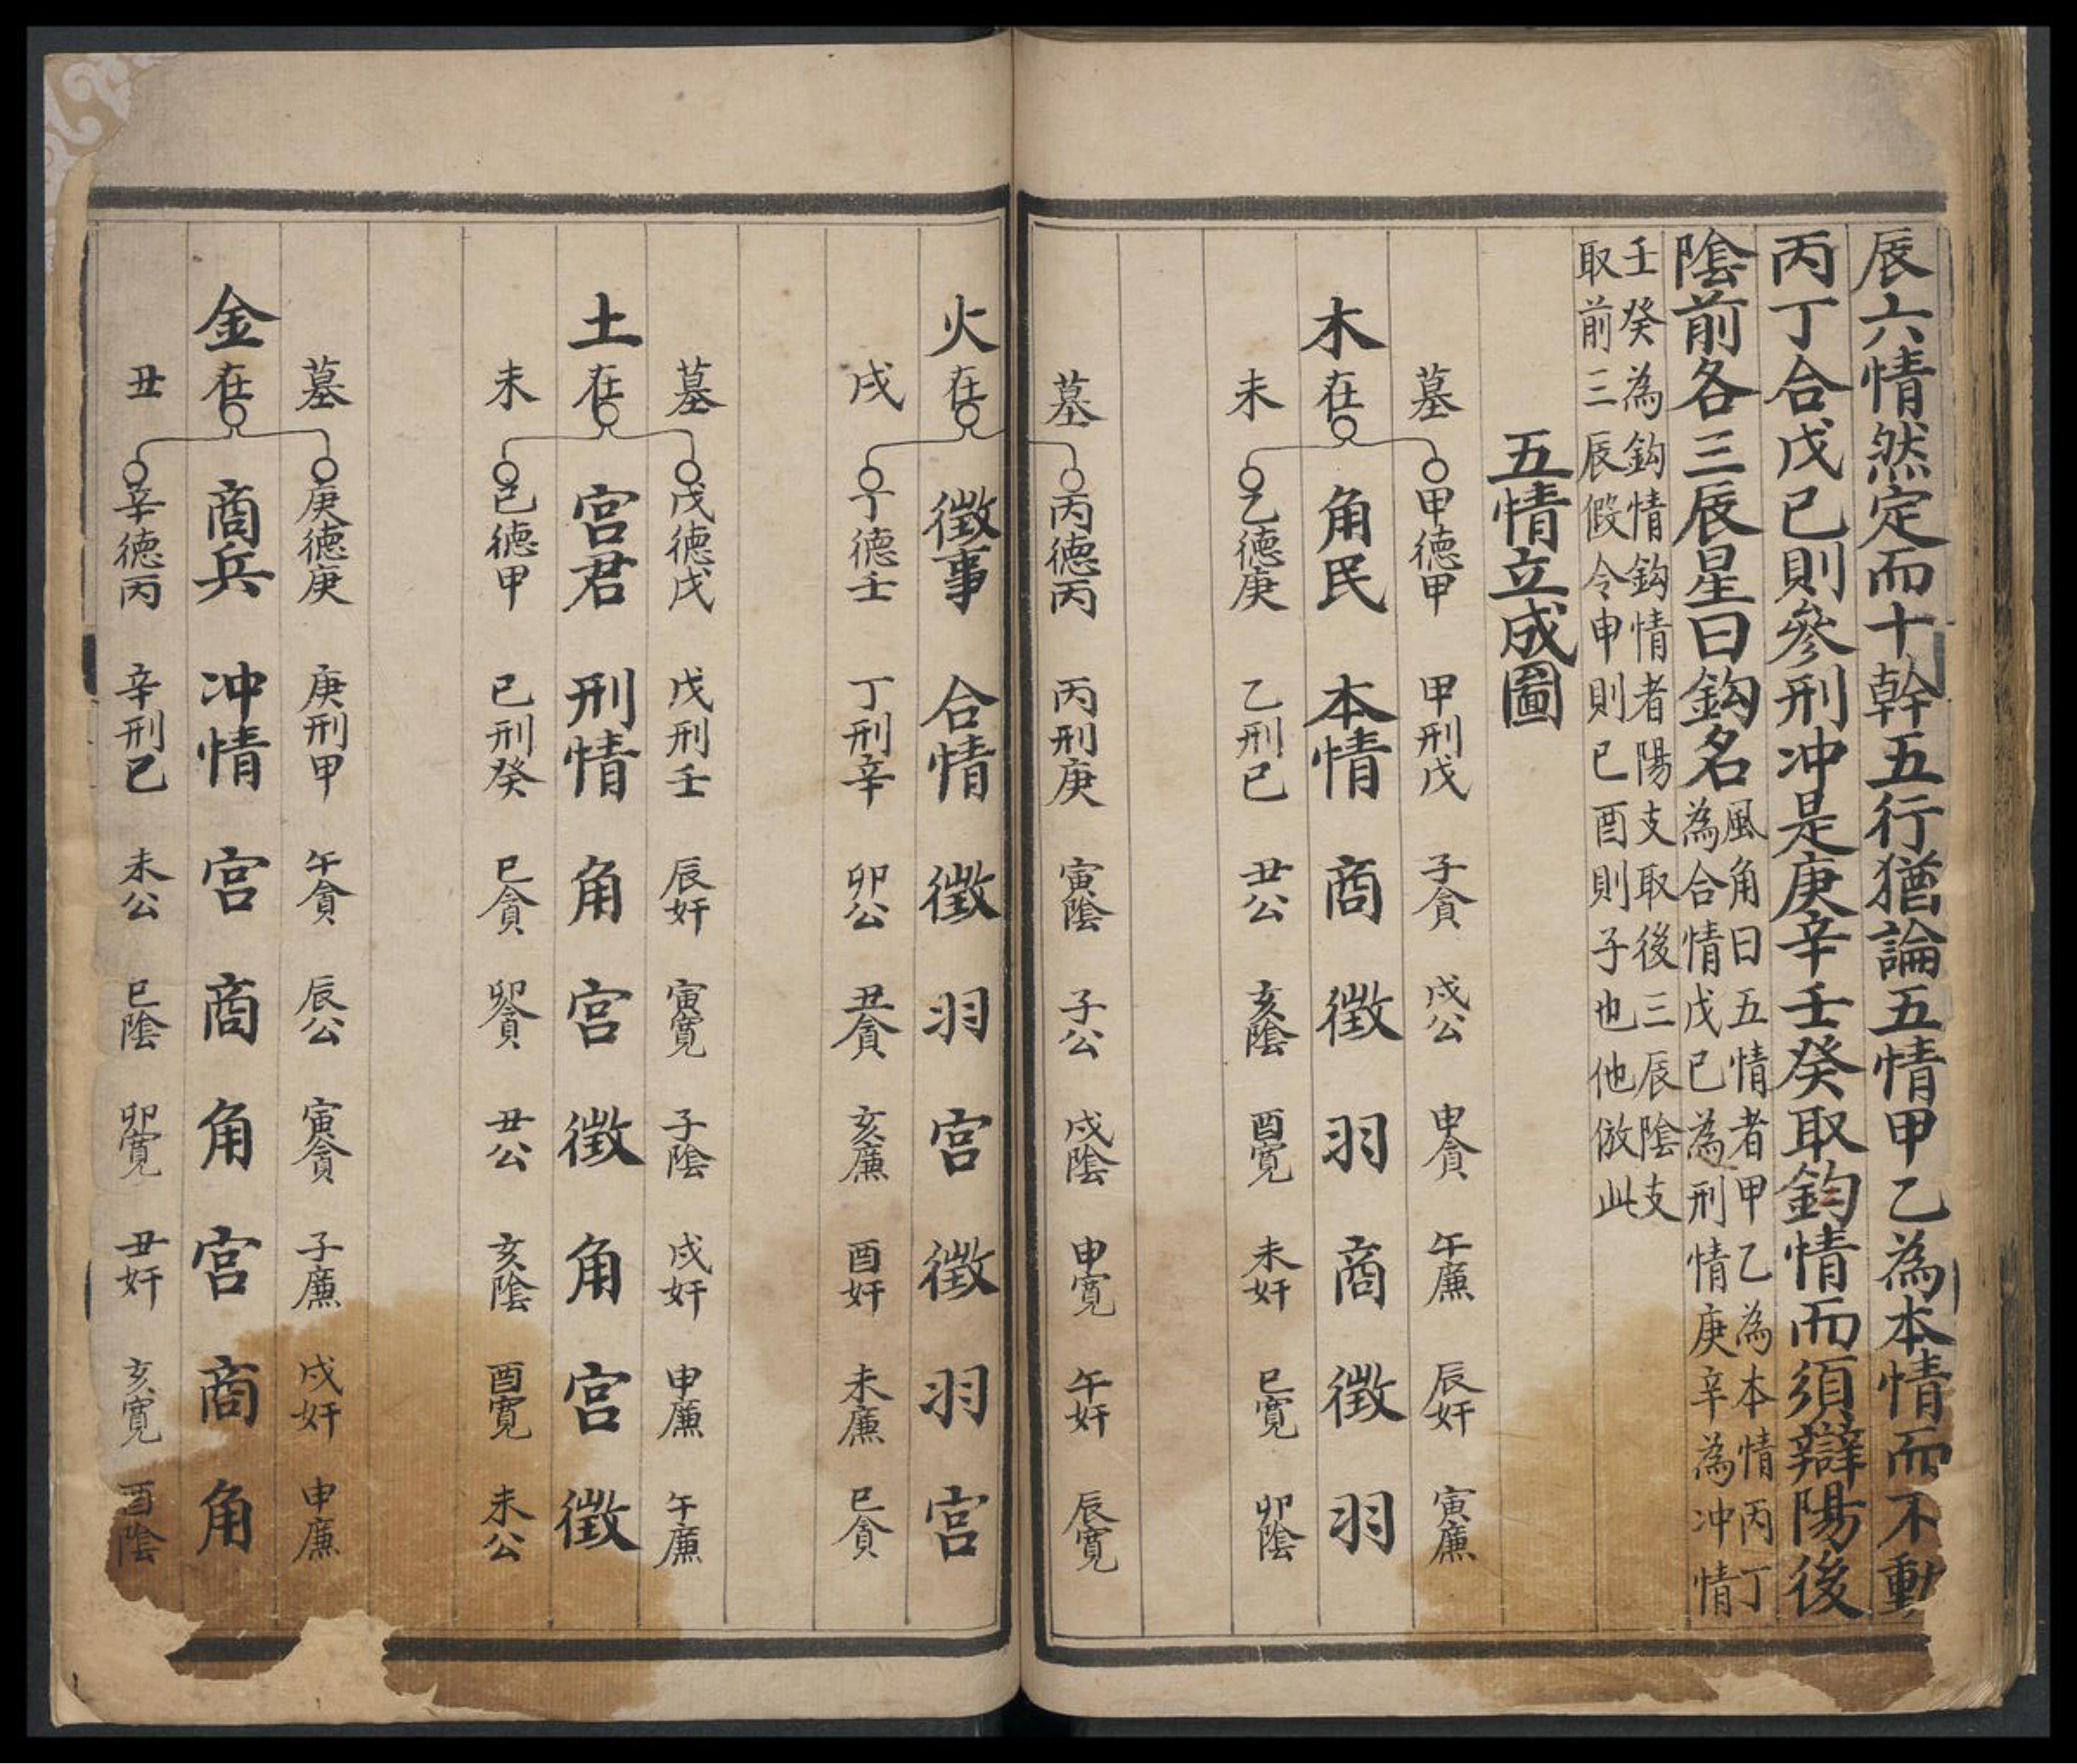 辰六情然定而十幹五行猶論五情甲乙為本情而不動
丙丁合戊己則參刑冲是庚辛壬癸取鈞情而須辯陽後
陰前各三辰星曰鈎名
風角曰五情者甲乙為本情丙丁
為合情戊己為刑情庚辛為冲情
壬癸為鈎情鈎情者陽支取後三辰陰支
取前三辰假令申則巳酉則子也他倣此
五情立成圖
墓 甲德甲 甲刑戊 子貪 戌公 申貪 午廉 辰奸 寅廉
木在 角民 本情 商 徵 羽 商 徵 羽
未 乙德庚 乙刑己 丑公 亥陰 酉寬 未奸 巳寬 卯陰
墓 丙德丙 丙刑庚 寅陰 子公 戌陰 申寬 午奸 辰寬
火在 徵事 合情 徵 羽 宮 徵 羽 宮
戌 丁德壬 丁刑辛 卯公 丑貪 亥廉 酉奸 未廉 巳貪
墓 戊德戊 戊刑壬 辰奸 寅寬 子陰 戌奸 申廉 午廉
土在 宮君 刑情 角 宮 徵 角 宮 徵
未 己德甲 己刑癸 巳貪 卯貪 丑公 亥陰 酉寬 未公
墓 庚德庚 庚刑甲 午貪 辰公 寅貪 子廉 戌奸 申廉
金在 商兵 冲情 宮 商 角 宮 商 角
丑 辛德丙 辛刑己 未公 巳陰 卯寬 丑奸 亥寬 酉陰